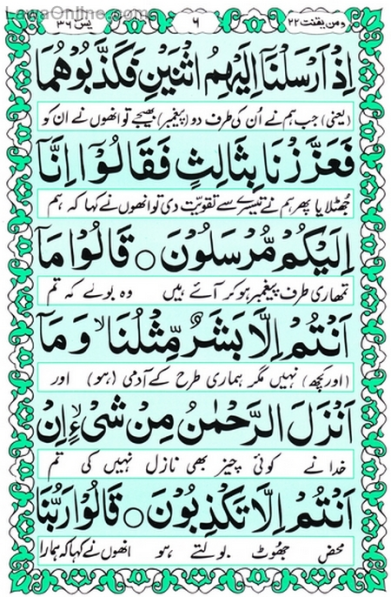 LawaOnline.com
ومن یقنت ۲۲
۶
یٰسٓ ۳۶
اِذْ اَرْسَلْنَاۤ اِلَيْهِمُ اثْنَيْنِ فَكَذَّبُوْهُمَا
(یعنی) جب ہم نے اُن کی طرف دو (پیغمبر) بھیجے تو انھوں نے ان کو
فَعَزَّزْنَا بِثَالِثٍ فَقَالُوْۤا اِنَّاۤ
جھٹلایا پھر ہم نے تیسرے سے تقویت دی تو انھوں نے کہا کہ ہم
اِلَيْكُمْ مُّرْسَلُوْنَ ○ قَالُوْا مَاۤ
تمھاری طرف پیغمبر ہو کر آئے ہیں وہ بولے کہ تم
اَنْتُمْ اِلَّا بَشَرٌ مِّثْلُنَا ۙ وَمَاۤ
(اور کچھ) نہیں مگر ہماری طرح کے آدمی (ہو) اور
اَنْزَلَ الرَّحْمٰنُ مِنْ شَىْءٍ ۙ اِنْ
خدا نے کوئی چیز بھی نازل نہیں کی تم
اَنْتُمْ اِلَّا تَكْذِبُوْنَ ○ قَالُوْا رَبُّنَا
محض جھوٹ بولتے ہو انھوں نے کہا کہ ہمارا